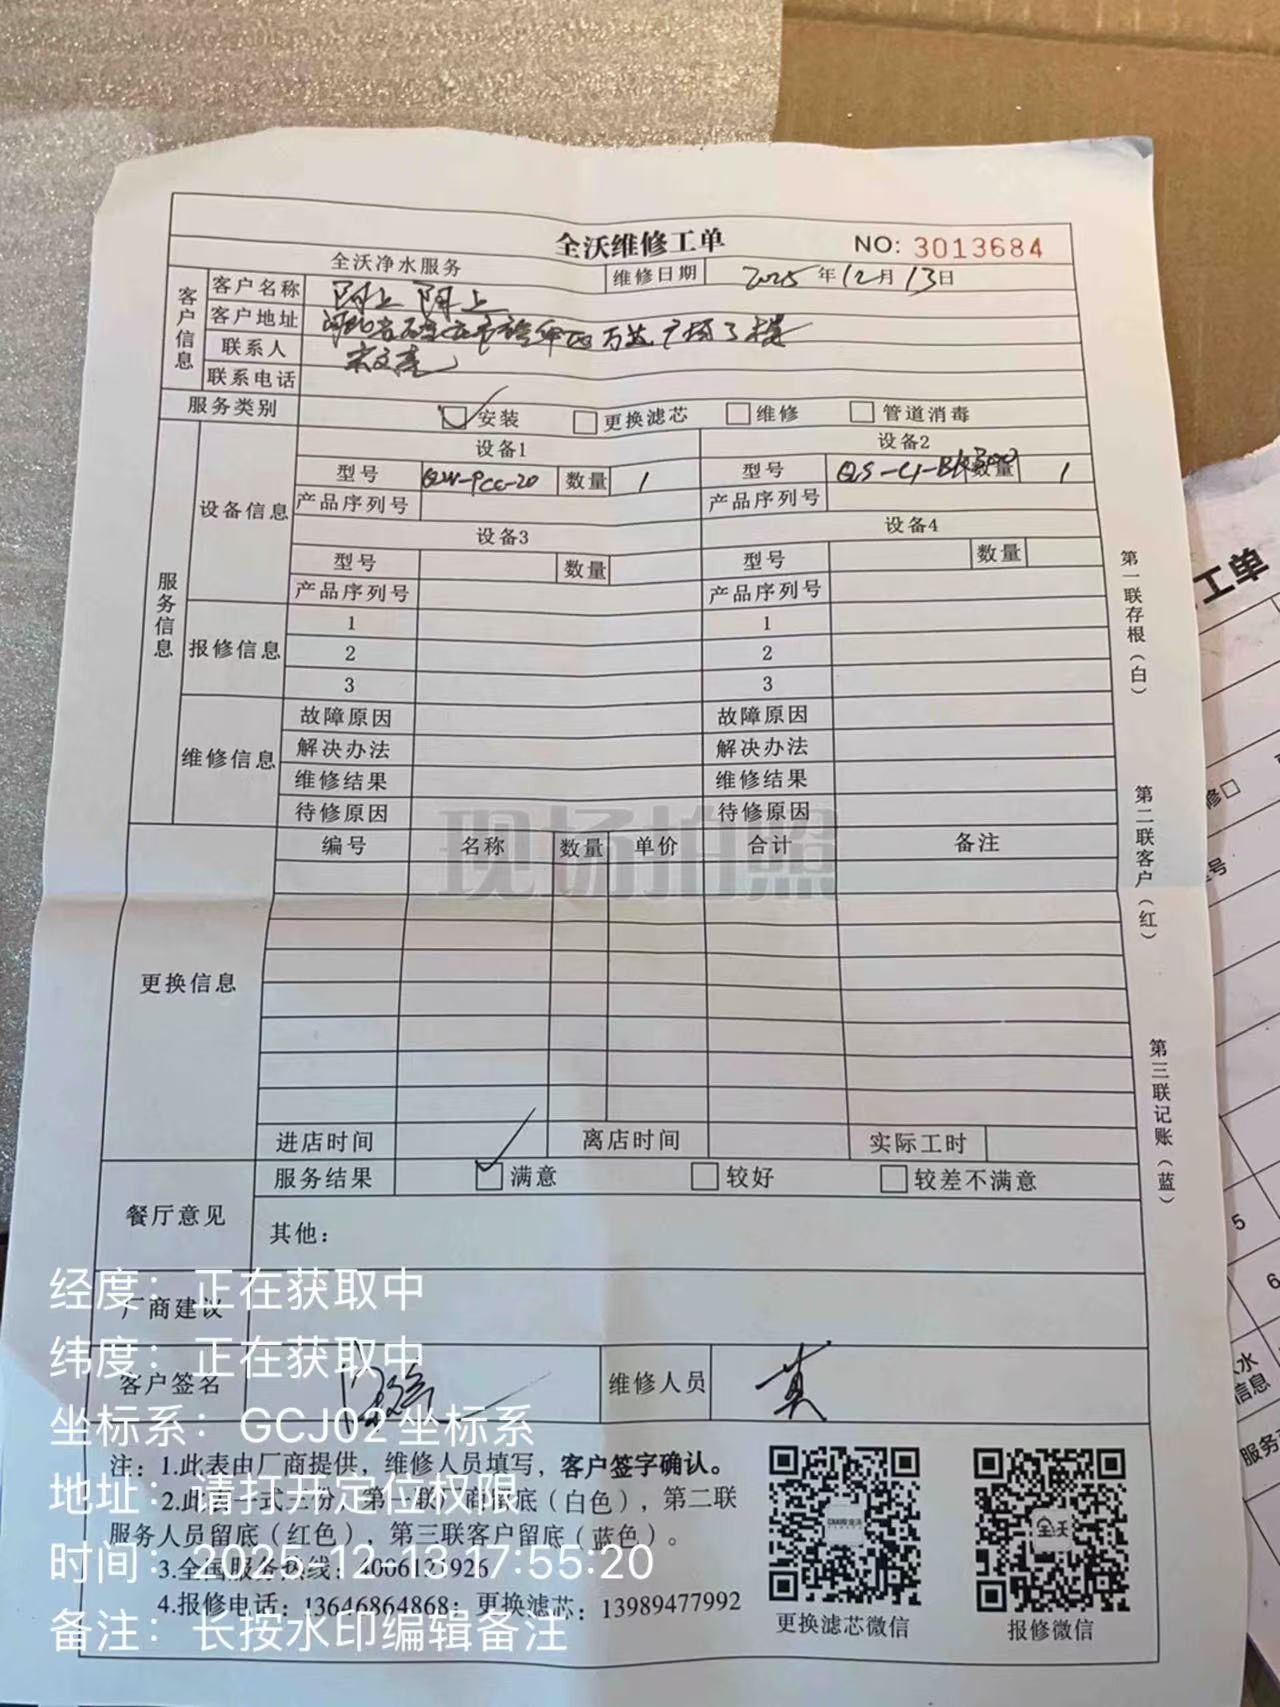 全沃维修工单
NO: 3013684
全沃净水服务 维修日期 2025年12月13日
客户信息
客户名称 阿上 阿上
客户地址 河北省石家庄市裕华区万达广场3楼
联系人 宋文亮
联系电话
服务类别 安装 更换滤芯 维修 管道消毒
服务信息
设备信息
设备1 设备2
型号 QW-PCC-20 数量 1 型号 数量 1
产品序列号 产品序列号
设备3 设备4
型号 数量 型号 数量
产品序列号 产品序列号
报修信息
1 1
2 2
3 3
维修信息
故障原因 故障原因
解决办法 解决办法
维修结果 维修结果
待修原因 待修原因
现场拍照
更换信息
编号 名称 数量 单价 合计 备注
进店时间 离店时间 实际工时
餐厅意见
服务结果 满意 较好 较差不满意
其他：
厂商建议
客户签名 维修人员
注：1.此表由厂商提供，维修人员填写，客户签字确认。
2.此表一式三份，第一联厂商留底（白色），第二联
服务人员留底（红色），第三联客户留底（蓝色）。
3.全国服务热线：4006121926
4.报修电话：13646864868；更换滤芯：13989477992
更换滤芯微信
全沃
报修微信
第一联存根（白）
第二联客户（红）
第三联记账（蓝）
经度：正在获取中
纬度：正在获取中
坐标系：GCJ02坐标系
地址：请打开定位权限
时间：2025-12-13 17:55:20
备注：长按水印编辑备注
工单
修□
号
5
6
水
信息
服务